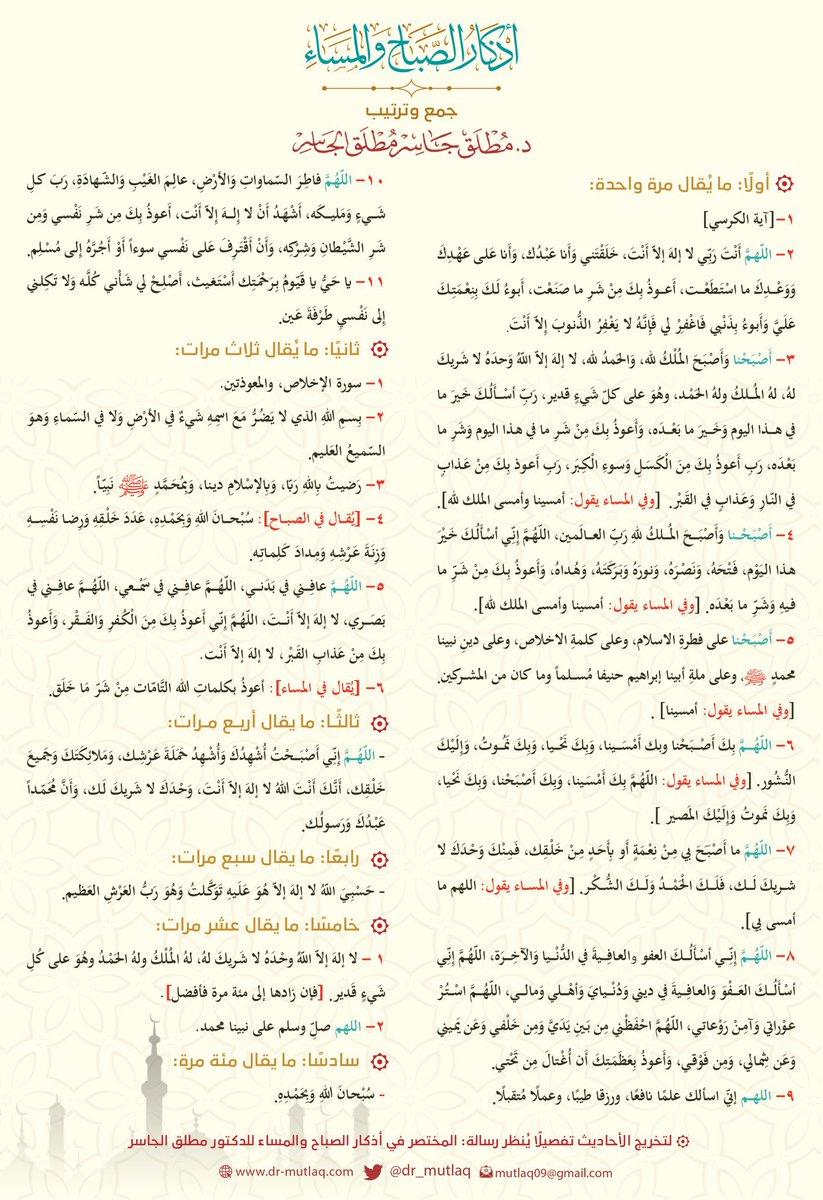 أَذْكَارُ الصَّبَاحِ وَالمَسَاءِ
جمع وترتيب
د. مُطْلَق جَاسِر مُطْلَق الجَاسِر
أولًا: ما يُقال مرة واحدة:
١- [آية الكرسي]
٢- اللّهمَّ أَنْتَ رَبِّي لا إلهَ إلاّ أَنْتَ، خَلَقْتَني وَأَنا عَبْدُك، وَأَنا عَلى عَهْدِكَ
وَوَعْـدِكَ ما اسْتَطَعْـت، أَعـوذُ بِكَ مِنْ شَرِ ما صَنَعْت، أَبوءُ لَكَ بِنِعْمَتِكَ
عَلَيَّ وَأَبوءُ بِذَنْبي فَاغْفِرْ لي فَإِنَّهُ لا يَغْفِرُ الذُّنوبَ إِلاّ أَنْتَ.
٣- أَصْبَحْنا وَأَصْبَحَ المُلْكُ لله، وَالحَمدُ لله، لا إلهَ إلاّ اللّهُ وَحدَهُ لا شَريكَ
لهُ، لهُ المُـلكُ ولهُ الحَمْـد، وهُوَ على كلّ شَيءٍ قدير، رَبِّ أسْـأَلُـكَ خَيرَ ما
في هـذا اليوم وَخَـيرَ ما بَعْـدَه، وَأَعوذُ بِكَ مِنْ شَرِ ما في هذا اليوم وَشَرِ ما
بَعْدَه، رَبِ أَعوذُ بِكَ مِنَ الْكَسَلِ وَسوءِ الْكِبَر، رَبِ أَعوذ بِكَ مِنْ عَذابٍ
في النّارِ وَعَذابٍ في القَبْر. [وفي المساء يقول: أمسينا وأمسى الملك لله].
٤- أَصْبَـحْـنا وَأَصْبَـحَ المُـلكُ لله رَبِّ العـالَمين، اللّهُمَّ إِنّي أَسْأَلُـكَ خَيْرَ
هذا اليَوْم، فَتْحَهُ، وَنَصْرَهُ، وَنورَهُ وَبَرَكَتَهُ، وَهُداهُ، وَأَعوذُ بِكَ مِنْ شَرِّ ما
فيهِ وَشَرِّ ما بَعْدَه. [وفي المساء يقول: أمسينا وأمسى الملك لله].
٥- أَصْبَحْنا على فطرةِ الاسلام، وعلى كلمةِ الاخلاص، وعلى دينِ نبينا
محمدٍ ﷺ، وعلى ملةِ أبينا إبراهيم حنيفا مُسـلماً وما كان من المشركين.
[وفي المساء يقول: أمسينا] .
٦- اللّهُـمَّ بِكَ أَصْـبَـحْنا وبك أمْسَـينا، وَبِكَ نَحْـيا، وَبِكَ نَمُـوتُ، وَإِلَيْكَ
النُّشُور. [وفي المساء يقول: اللّهُمَّ بِكَ أَمْسَينا، وَبِكَ أَصْبَحْنا، وَبِكَ نَحْيا،
وَبِكَ نَموتُ وَإِلَيْكَ المَصير ].
٧- اللّهُمَّ ما أَصْبَحَ بي مِنْ نِعْمَةٍ أَو بِأَحَدٍ مِنْ خَلْقِك، فَمِنْكَ وَحْدَكَ لا
شريكَ لَـك، فَلَـكَ الْحَمْـدُ وَلَـكَ الشُّـكْر. [وفي المسـاء يقول: اللهم ما
أمسى بي].
٨- اللّهُـمَّ إِنّـي أَسْأَلُـكَ العفو والعافِـيةَ في الدُّنْـيا وَالآخِـرَة، اللّهُمَّ إِنِّي
أَسأَلُـكَ العَـفْوَ وَالعافِـيةَ في ديني وَدُنْـيايَ وَأهْـلي وَمالـي، اللّهُـمَّ اسْـتُرْ
عوْراتي وَآمِنْ رَوْعاتي، اللّهُمَّ احْفَظْني مِن بَينِ يَدَيَّ وَمِن خَلْفي وَعَن يَميني
وَعَن شِمالي، وَمِن فَوْقي، وَأَعوذُ بِعَظَمَتِكَ أَن أُغْتالَ مِن تَحْتي.
٩- اللهـم إنيّ اسالك علمًا نافعًا، ورزقا طيبًا، وعملًا مُتقبلًا.
١٠- اللّهُمَّ فاطِرَ السّماواتِ وَالأرْضِ، عالِمَ الغَيْبِ وَالشّهادَةِ، رَبَ كـلِ
شَـيءٍ وَمَليـكَه، أَشْهَدُ أَنْ لا إِلـهَ إِلاّ أَنْت، أَعوذُ بِكَ مِن شَرِ نَفْسي وَمِن
شَرِ الشَّيْطانِ وَشِركِه، وَأَنْ أَقْتَرِفَ عَلى نَفْسي سوءاً أَوْ أَجُرَّهُ إِلى مُسْلِم.
١١- يا حَيُّ يا قَيّومُ بِرَحْمَتِك أَسْتَغيث، أَصْلِحْ لي شَأْني كُلَّه وَلا تَكِلني
إِلى نَفْسي طَرْفَةَ عَين.
ثانيًا: ما يُقال ثلاث مرات:
١- سورة الإخلاص، والمعوذتين.
٢- بِسمِ اللهِ الذي لا يَضُرُّ مَعَ اسمِهِ شَيءٌ في الأرْضِ وَلا في السّماءِ وَهوَ
السّميعُ العَليم.
٣- رَضيتُ بِاللهِ رَبًا، وَبِالإسْلامِ دينا، وَبِمُحَمَّدٍ ﷺ نَبِيّاً.
٤- [يُقال في الصباح]: سُبْحـانَ اللهِ وَبِحَمْدِهِ، عَدَدَ خَلْقِهِ وَرِضا نَفْسِـهِ
وَزِنَةَ عَرْشِهِ وَمِدادَ كَلِماتِه.
٥- اللّهُـمَّ عافِـني في بَدَني، اللّهُـمَّ عافِـني في سَمْـعي، اللّهُـمَّ عافِـني في
بَصَـري، لا إلهَ إلاّ أَنْـتَ، اللّهُمَّ إِنّي أَعوذُ بِكَ مِنَ الْكُفرِ وَالفَـقْر، وَأَعوذُ
بِكَ مِنْ عَذابِ القَبْر، لا إلهَ إلاّ أَنْتَ.
٦- [يُقال في المساء]: أعوذُ بكلماتِ الله التَّامَّات مِنْ شَرِّ مَا خَلَق.
ثالثًـا: ما يقال أربـع مرات:
- اللّهُـمَّ إِنِّي أَصْبَـحْتُ أُشْهِدُكَ وَأُشْهِدُ حَمَلَةَ عَرْشِك، وَمَلائِكَتَكَ وَجَميعَ
خَلْقِك، أَنَّكَ أَنْتَ اللهُ لا إلهَ إلاّ أَنْتَ، وَحْدَكَ لا شَريكَ لَك، وَأَنَّ مُحَمّداً
عَبْدُكَ وَرَسولُك.
رابعًا: ما يقال سبع مرات:
- حَسْبِيَ اللّهُ لا إلهَ إلاّ هُوَ عَلَيهِ تَوَكَّلتُ وَهُوَ رَبُّ العَرْشِ العَظيم.
خامسًا: ما يقال عشر مرات:
١ - لا إلهَ إلاّ اللّهُ وحْدَهُ لا شَريكَ لهُ، لهُ المُلْكُ ولهُ الحَمْدُ وهُوَ على كُلِ
شَيءٍ قَدير. [فإن زادها إلى مئة مرة فأفضل].
٢- اللهم صلّ وسلم على نبينا محمد.
سادسًا: ما يقال مئة مرة:
- سُبْحانَ اللهِ وَبِحَمْدِهِ.
لتخريج الأحاديث تفصيلًا يُنظر رسالة: المختصر في أذكار الصباح والمساء للدكتور مطلق الجاسر
www.dr-mutlaq.com @dr_mutlaq mutlaq09@gmail.com